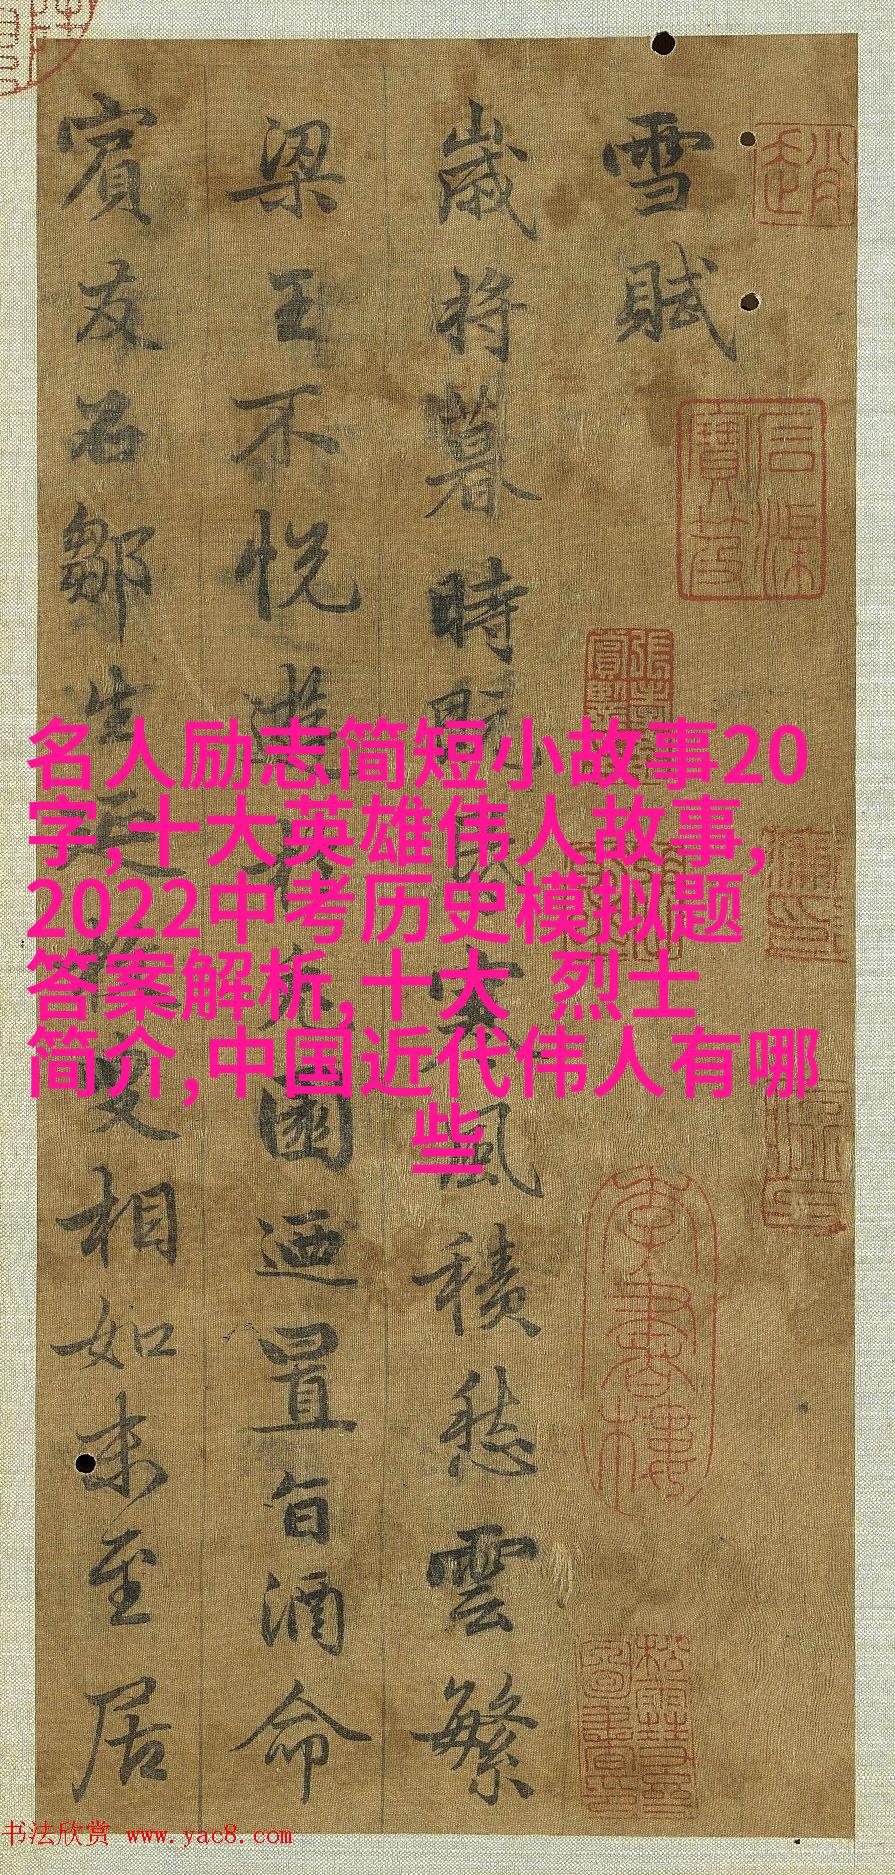 雪賦
歲将暮時既昏寒風積愁雲繁
梁王不悦遊於兔園迺置旨酒命
賔友召鄒生延枚叟相如未至居
名人励志简短小故事20
字,十大英雄伟人故事,
2022中考历史模拟题
答案解析,十大 烈士
简介,中国近代伟人有哪
些
书法欣赏 www.yac8.com